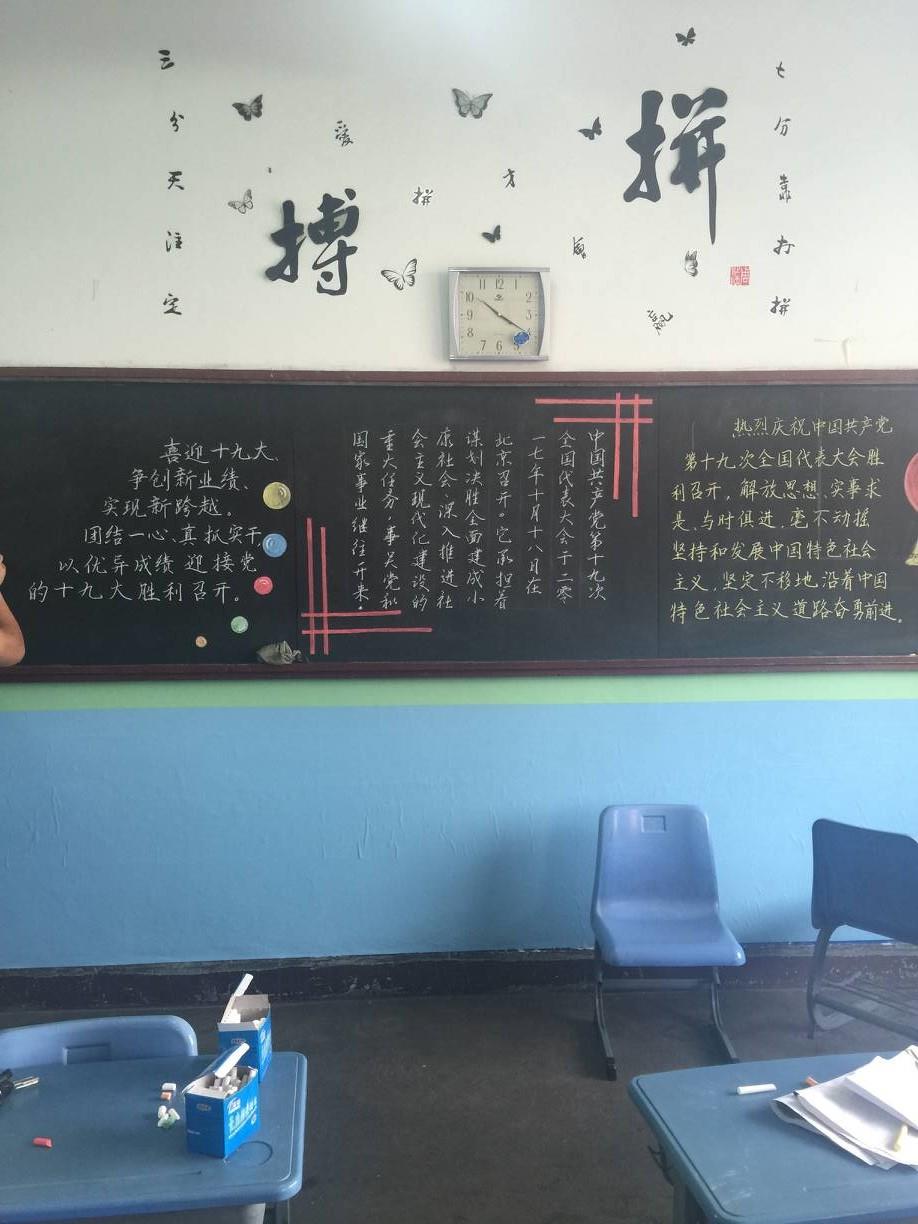 三分天注定
七分靠打拼
拼
搏
爱
拼
才
赢
会
喜迎十九大、
争创新业绩、
实现新跨越。
团结一心、真抓实干
以优异成绩 迎接党
的十九大胜利召开。
中国共产党第十九次
全国代表大会于二零
一七年十月十八日在
北京召开。它承担着
谋划决胜全面建成小
康社会、深入推进社
会主义现代化建设的
重大任务,事关党和
国家事业继往开来。
热烈庆祝中国共产党
第十九次全国代表大会胜
利召开,解放思想、实事求
是、与时俱进,毫不动摇
坚持和发展中国特色社会
主义,坚定不移地沿着中国
特色社会主义道路奋勇前进。
10 11 12 1 2 3 4 6 7 8 9